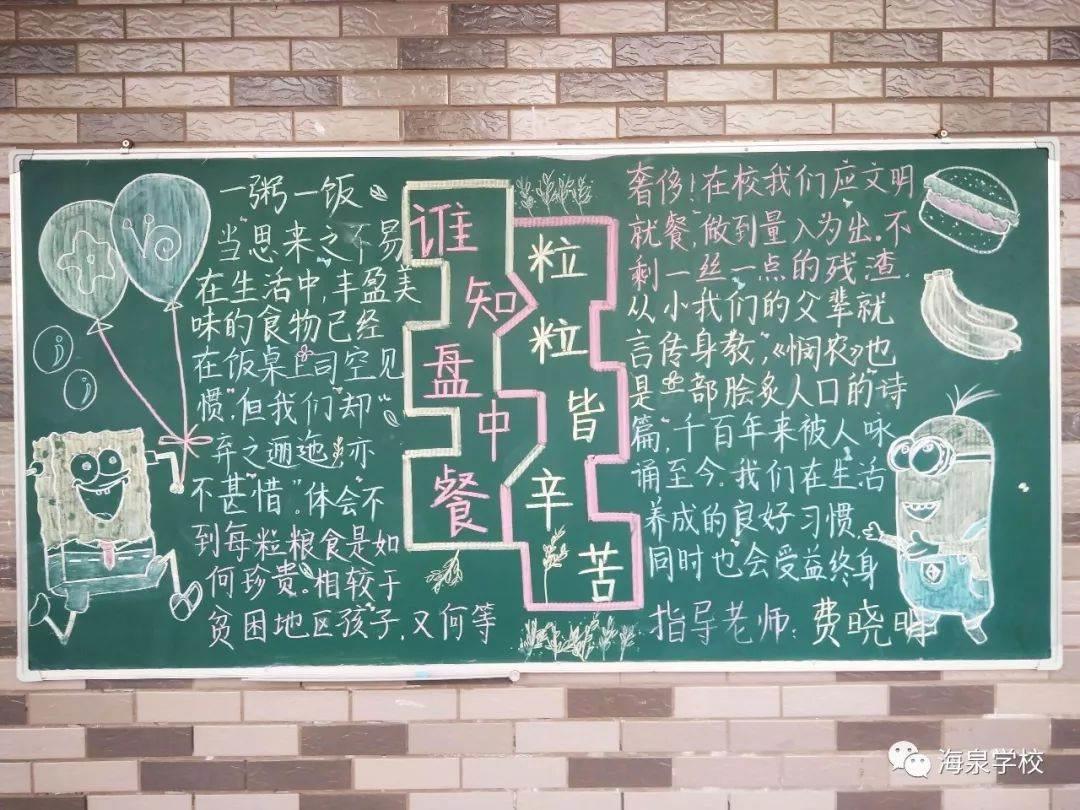 一粥一饭
当思来之不易
在生活中,丰盈美
味的食物已经
在饭桌上司空见
惯",但我们却"
弃之迤逦,亦
不甚"惜"。体会不
到每粒粮食是如
何珍贵。相较于
贫困地区孩子,又何等
谁知盘中餐
粒粒皆辛苦
奢侈!在校我们应文明
就餐,做到量入为出。不
剩一丝一点的残渣.
从小我们的父辈就
言传身教",《悯农》也
是一部脍炙人口的诗
篇,千百年来被人咏
诵至今.我们在生活
养成的良好习惯,
同时也会受益终身
指导老师:费晓明
海泉学校